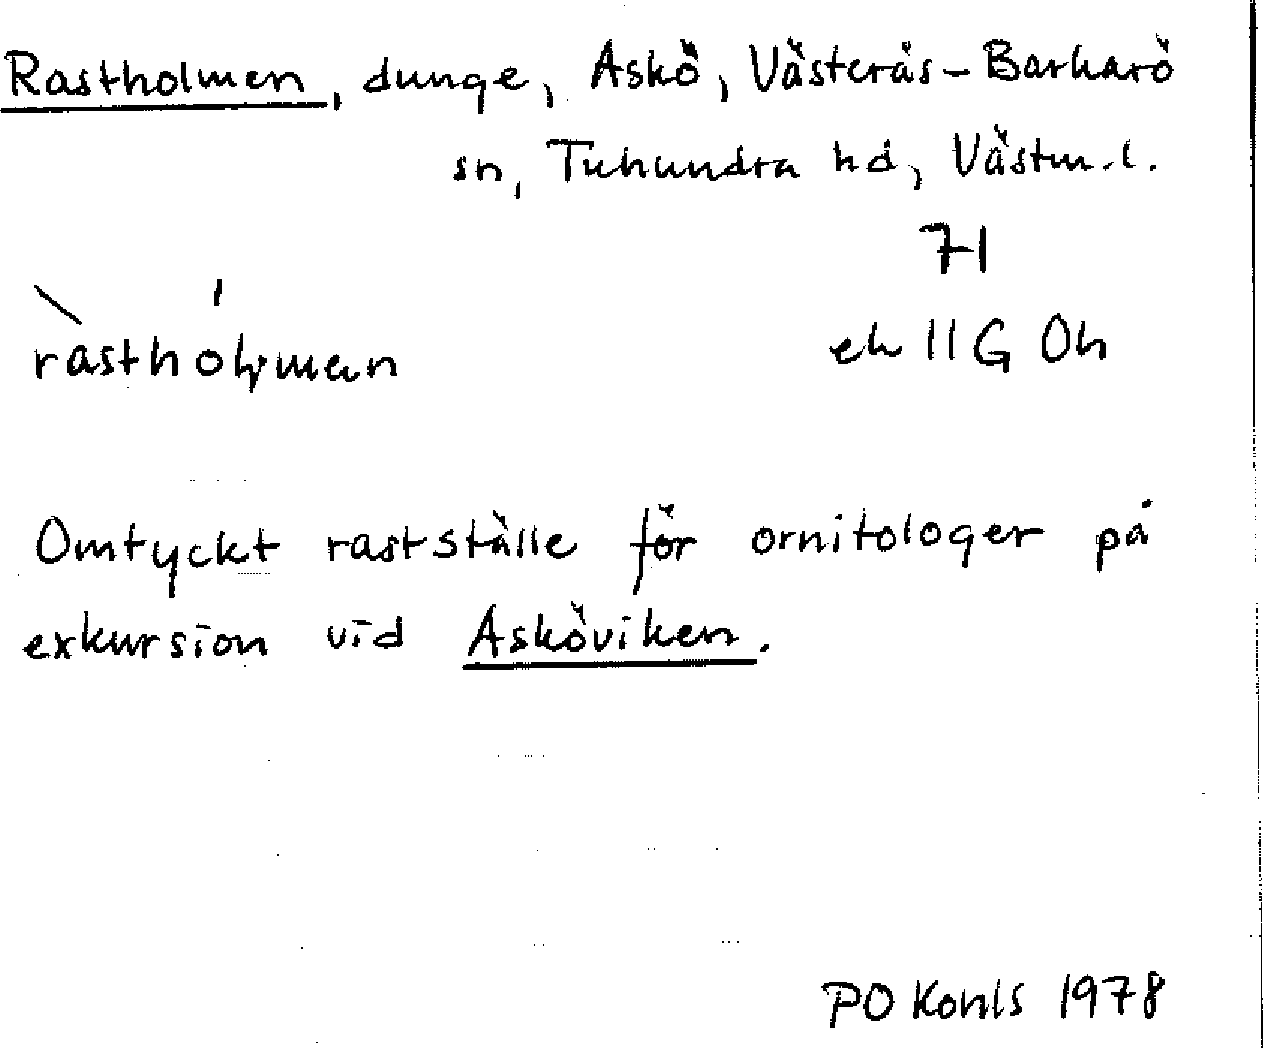 Rastholmen, dunge, Askö, Västerås-Barkarö
sn, Tuhundra hd, Västm.l.
71
ek 11G 0h
rastholmen
Omtyckt rastställe för ornitologer på
exkursion vid Asköviken.
PO 1978